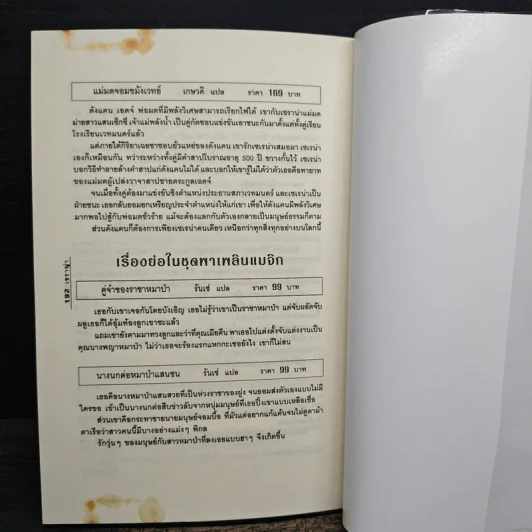 แม่มดจอมขมังเวทย์ เกษวดี แปล ราคา 169 บาท
ดังแคน เอดจ์ พ่อมดที่มีพลังวิเศษสามารถเรียกไฟได้ เขากับเซราน่าแม่มด
ม่ายสาวแสนเซ็กซี่ เจ้าแม่พลังน้ำ เป็นคู่กัดชอบแข่งขันเอาชนะกันมาตั้งแต่ทั้งคู่เรียน
โรงเรียนเวทมนตร์แล้ว
แต่ภายใต้กิริยาเฉยชาชอบยั่วแหย่ของดังแคน เขารักเซเรน่าเสมอมา เซเรน่า
เองก็เหมือนกัน ทว่าระหว่างทั้งคู่มีคำสาปโบราณอายุ 500 ปี ขวางกั้นไว้ เซเรน่า
บอกวิธีทำลายล้างคำสาปแก่ดังแคนไม่ได้ และบอกให้เขารู้ไม่ได้ว่าตัวเธอคือทายาท
ของแม่มดผู้เปล่งวาจาสาปชายตระกูลเอดจ์
จนเมื่อทั้งคู่ต้องมาแข่งขันชิงตำแหน่งประธานสภาเวทมนตร์ และเซเรน่าเป็น
ฝ่ายชนะ เธอกลับยอมยกเหรียญประจำตำแหน่งให้แก่เขา เพื่อให้ดังแคนมีพลังวิเศษ
มากพอไปสู้กับพ่อมดชั่วร้าย แม้จะต้องแลกกับตัวเองกลายเป็นมนุษย์ธรรมดาก็ตาม
ส่วนดังแคนก็ต้องการเพียงเซเรน่าคนเดียว เหนือกว่าทุกสิ่งทุกอย่างบนโลกนี้
เรื่องย่อในชุดพาเพลินแมจิก
คู่จ๋าของราชาหมาป่า รันเช่ แปล ราคา 99 บาท
เธอกับเขาเจอกันโดยบังเอิญ เธอไม่รู้ว่าเขาเป็นราชาหมาป่า แต่จับผลัดจับ
ผลูเธอก็ได้อุ้มท้องลูกเขาซะแล้ว
แถมเขายังตามมาทวงลูกและว่าที่คุณเมียคืน พาเธอไปแต่งตั้งจับแต่งงานเป็น
คุณนางพญาหมาป่า ไม่ว่าเธอจะร้องแรกแหกกะเชอยังไง เขาก็ไม่สน
นางนกต่อหมาป่าแสนซน รันเช่ แปล ราคา 99 บาท
เธอคือนางหมาป่าแสนสวยที่เป็นห่วงราชาของฝูง จนยอมส่งตัวเองแบบไม่มี
ใครขอ เข้าเป็นนางนกต่อสืบข่าวลับจากหนุ่มมนุษย์ที่เธอปิ๊งเขาแบบเหลือเชื่อ
ส่วนเขาคือกระทาชายนายมนุษย์จอมบื้อ ที่มัวแต่อยากแก้แค้นจนไม่ดูตาม้า
ตาเรือว่าสาวคนนี้มีบางอย่างแม่งๆ พิกล
รักวุ่นๆ ของมนุษย์กับสาวหมาป่าที่ลงเอยแบบฮาๆ จึงเกิดขึ้น
192